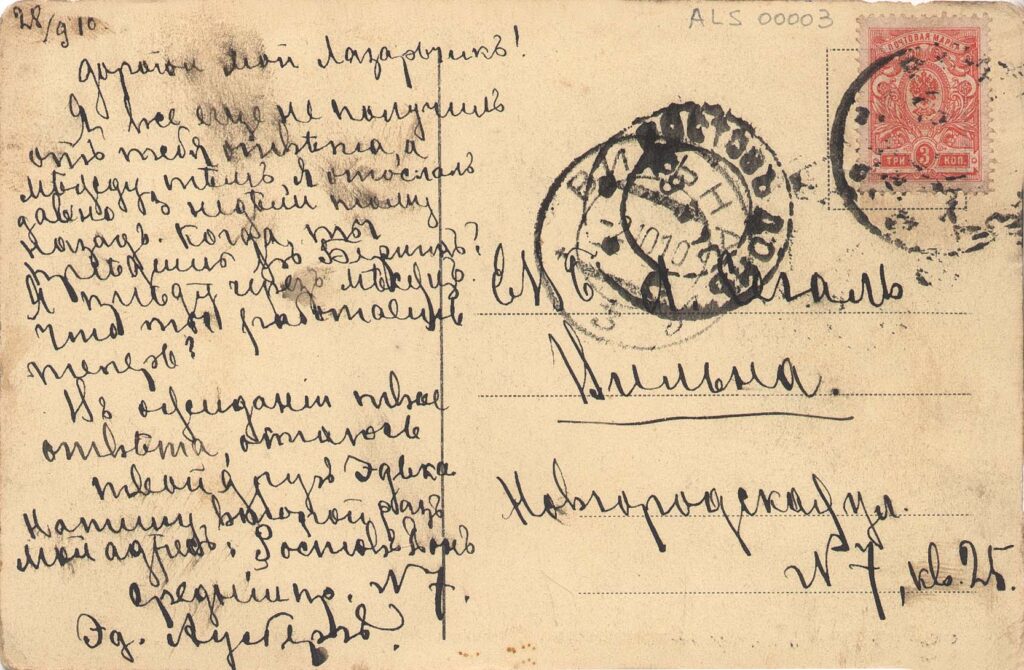 28/9 10
ALS 00003
Дорогой мой Лазарчикъ!
Я все еще не получилъ
отъ тебя отвѣта, а
между тѣмъ я отослалъ
давно 3 недѣли тому
назадъ. Когда ты
въ Берлинъ?
Я приѣду черезъ мѣсяцъ.
Что ты работаешь
теперь?
Въ ожиданіи твое
отвѣта, остаюсь
твой другъ Эдька
Напишу второй разъ
мой адресъ: Ростовъ Донъ
средній пр. N 7.
Эд.
ПОЧТОВАЯ МАРКА
ТРИ 3 КОП.
РОСТОВЪ
ВИЛЬНА
Сегаль
Вильна.
Новгородская ул.
N 7, кв. 25.